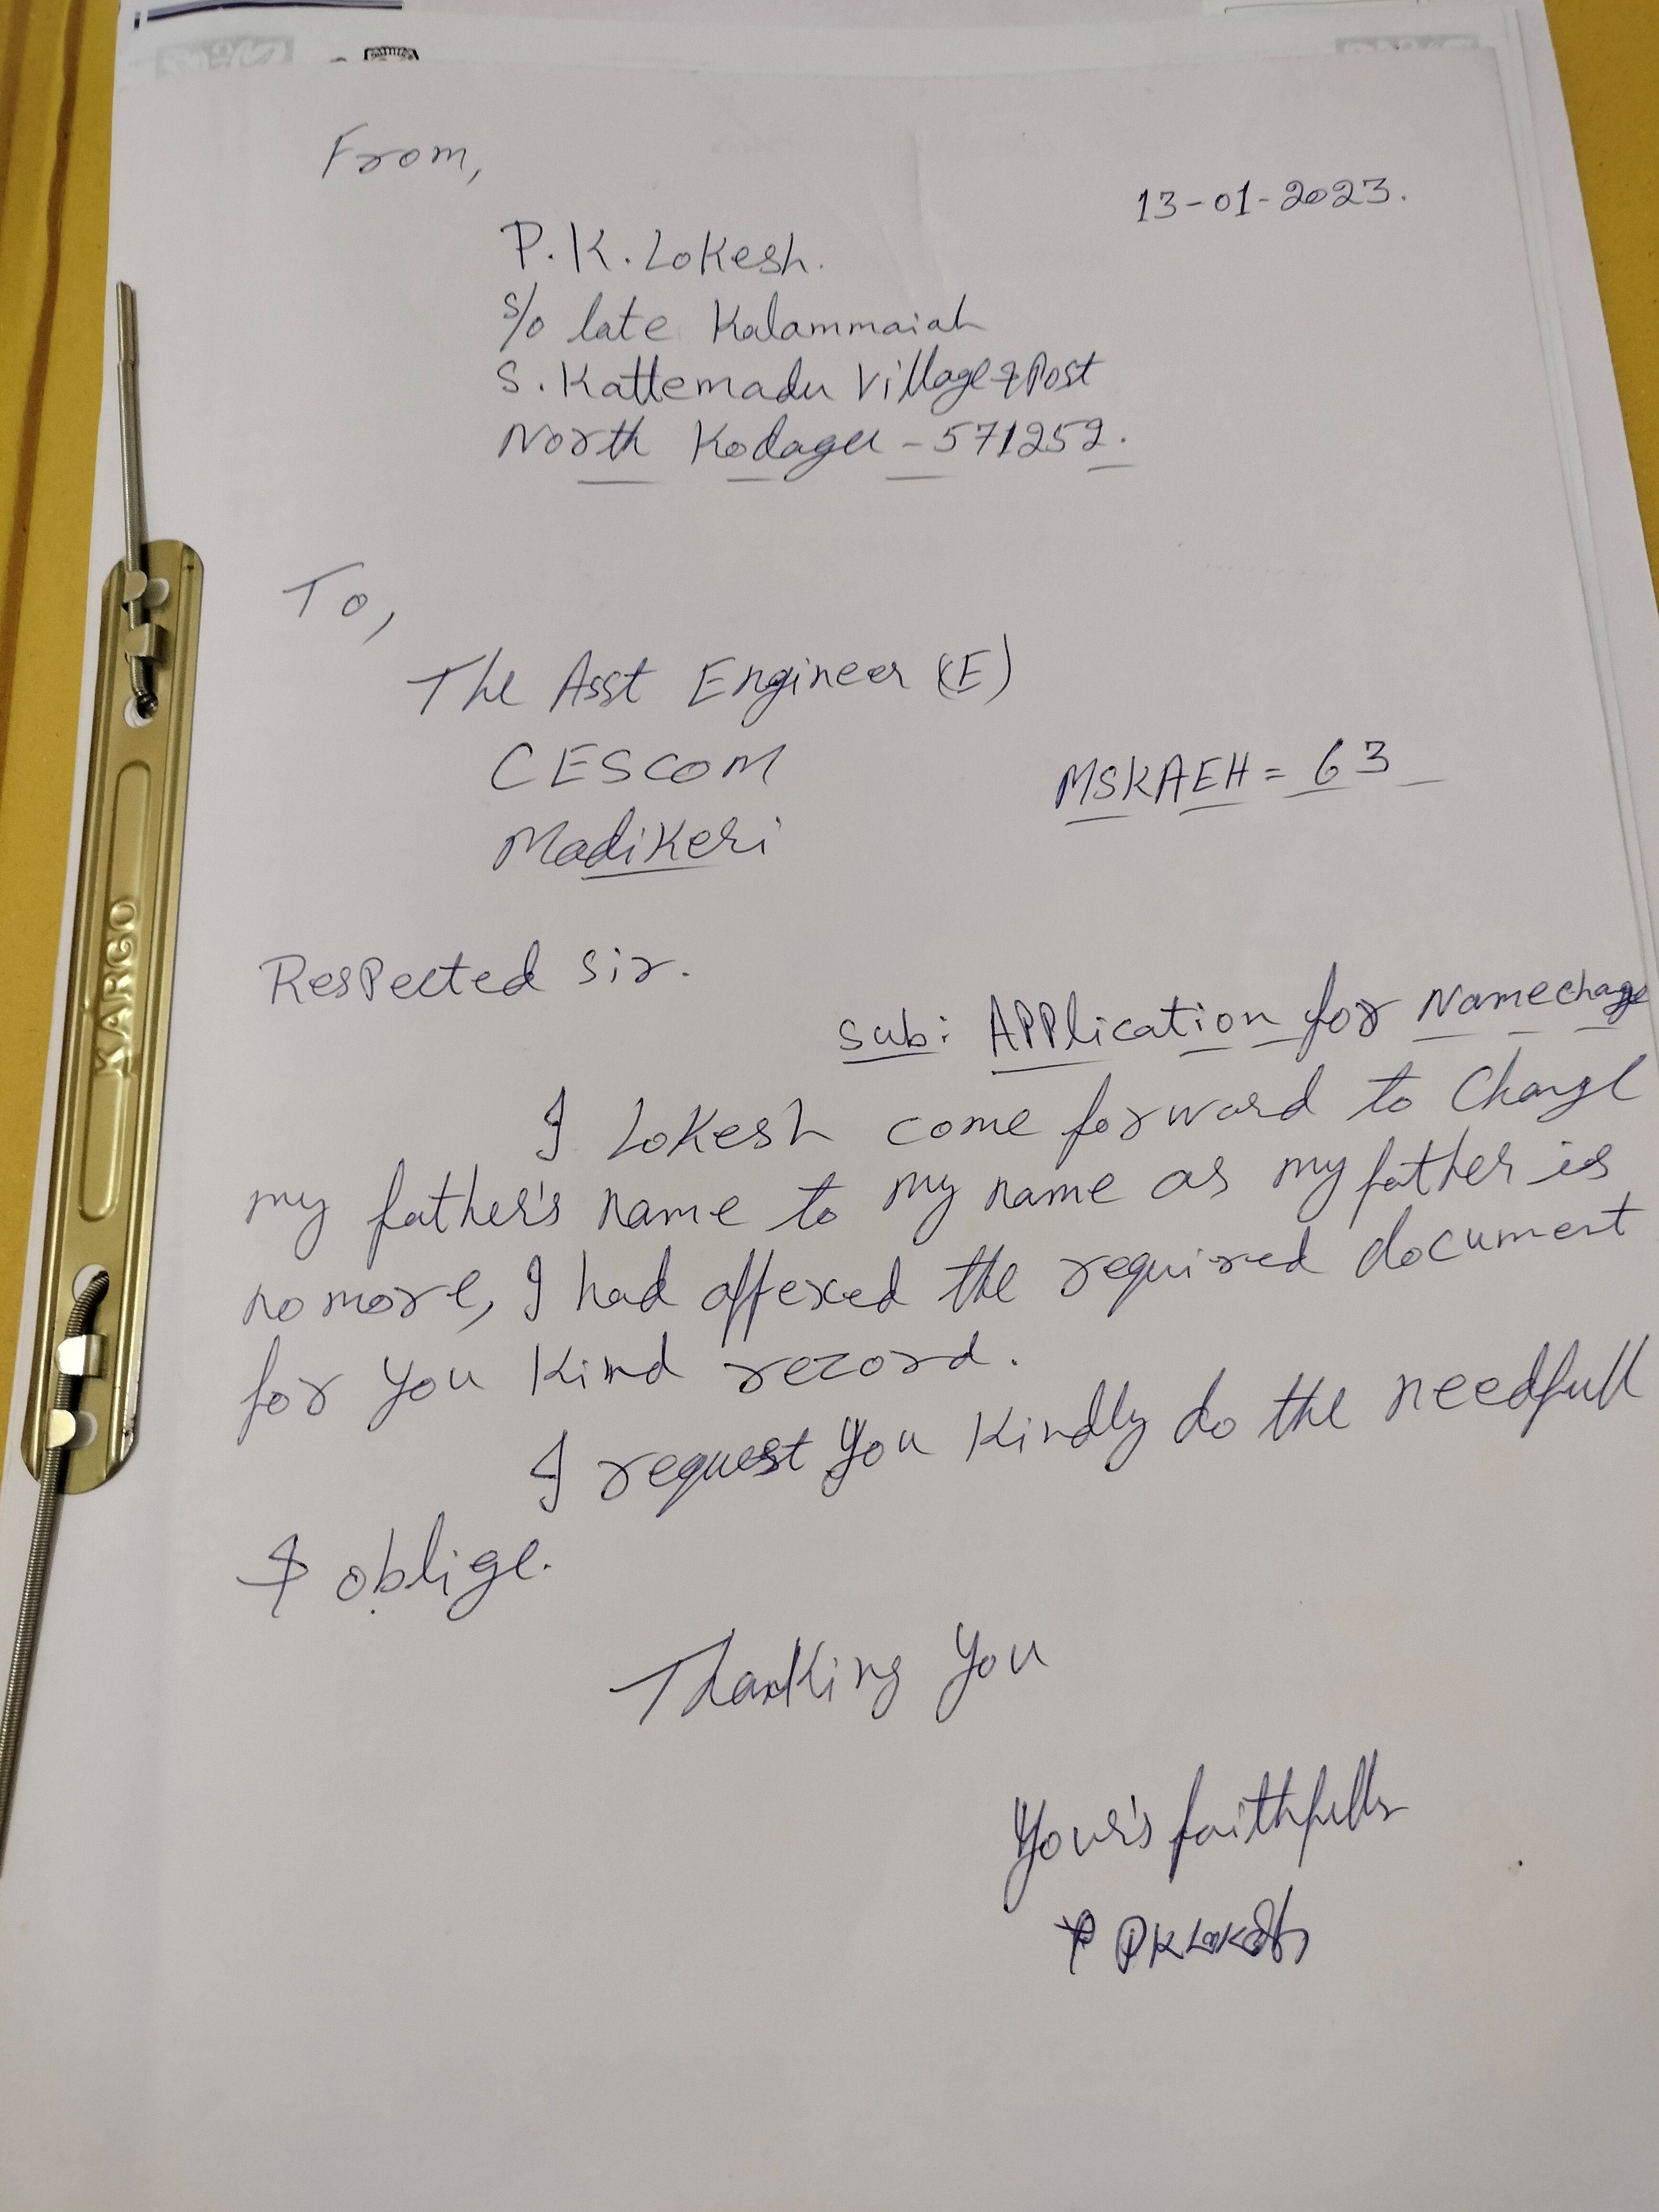 From,
13-01-2023.
P.K. Lokesh.
s/o late Kalammaiah
S. Kattemadu Village & Post
North Kodagu - 571252.
To,
The Asst Engineer (E)
CESCOM
MSKAEH = 63
Madikeri
Respected sir.
Sub: Application for Namechage
I Lokesh come forward to Change
my father's name to my name as my father is
no more, I had affexed the required document
for you Kind record.
I request you Kindly do the needfull
& oblige.
Thanking You
Your's faithfully
PK Lokesh
KARGO